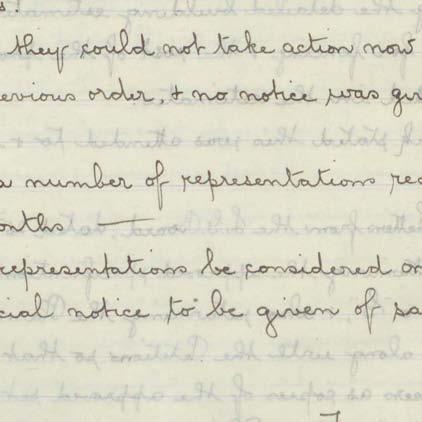 s.
they could not take action now
evious order, & no notice was giv
a number of representations rec
onths —
representations be considered on
cial notice to be given of sa